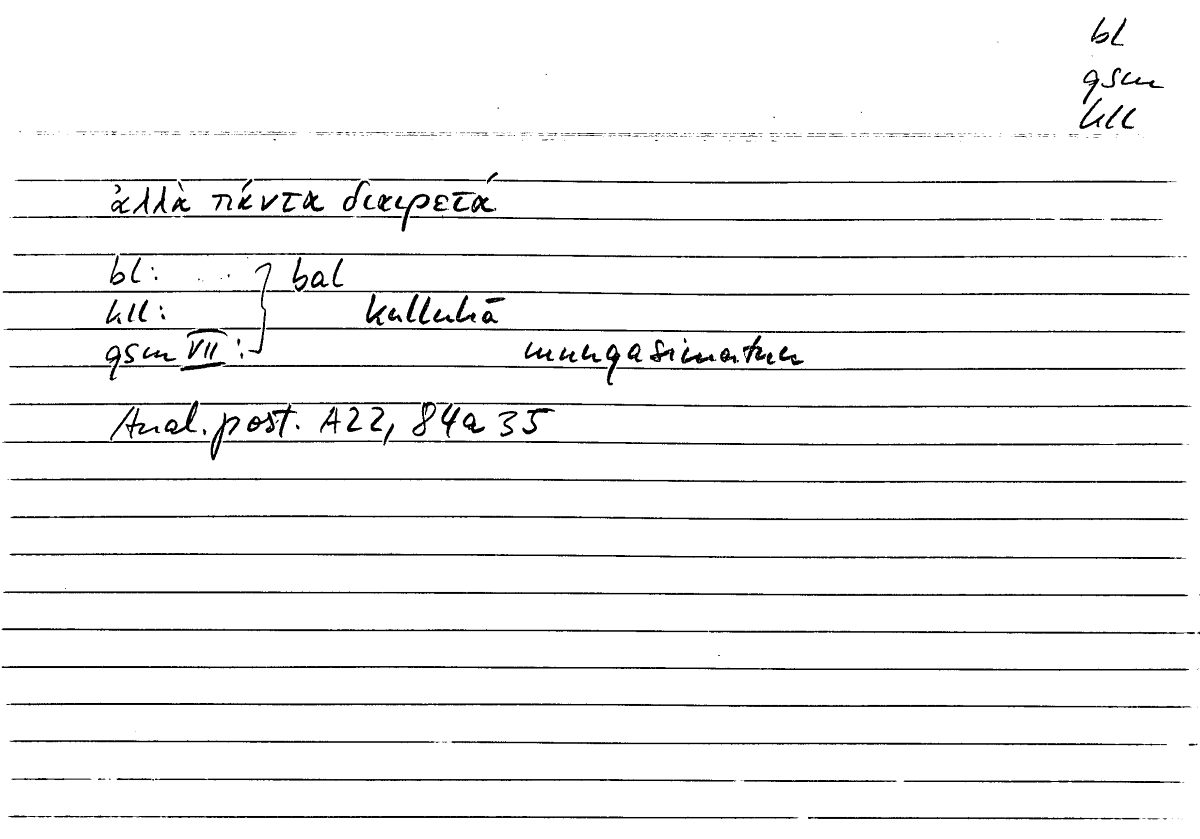 bl
qsm
kll
ἀλλὰ πάντα διαιρετά
bl: } bal
kll: kulluhā
qsm VII: munqasimatun
Anal. post. A22, 84a 35